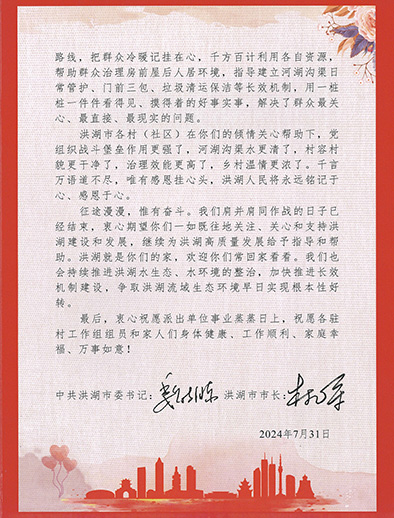 路线，把群众冷暖记挂在心，千方百计利用各自资源，
帮助群众治理房前屋后人居环境，指导建立河湖沟渠日
常管护、门前三包、垃圾清运保洁等长效机制，用一桩
桩一件件看得见、摸得着的好事实事，解决了群众最关
心、最直接、最现实的问题。
洪湖市各村（社区）在你们的倾情关心帮助下，党
组织战斗堡垒作用更强了，河湖沟渠水更清了，村容村
貌更干净了，治理效能更高了，乡村温情更浓了。千言
万语道不尽，唯有感恩挂心头，洪湖人民将永远铭记于
心、感恩于心。
征途漫漫，惟有奋斗。我们肩并肩同作战的日子已
经结束，衷心期望你们一如既往地关注、关心和支持洪
湖建设和发展，继续为洪湖高质量发展给予指导和帮
助。洪湖就是你们的家，欢迎你们常回家看看。我们也
会持续推进洪湖水生态、水环境的整治，加快推进长效
机制建设，争取洪湖流域生态环境早日实现根本性好
转。
最后，衷心祝愿派出单位事业蒸蒸日上，祝愿各驻
村工作组组员和家人们身体健康、工作顺利、家庭幸
福、万事如意！
中共洪湖市委书记： 洪湖市市长：
2024年7月31日